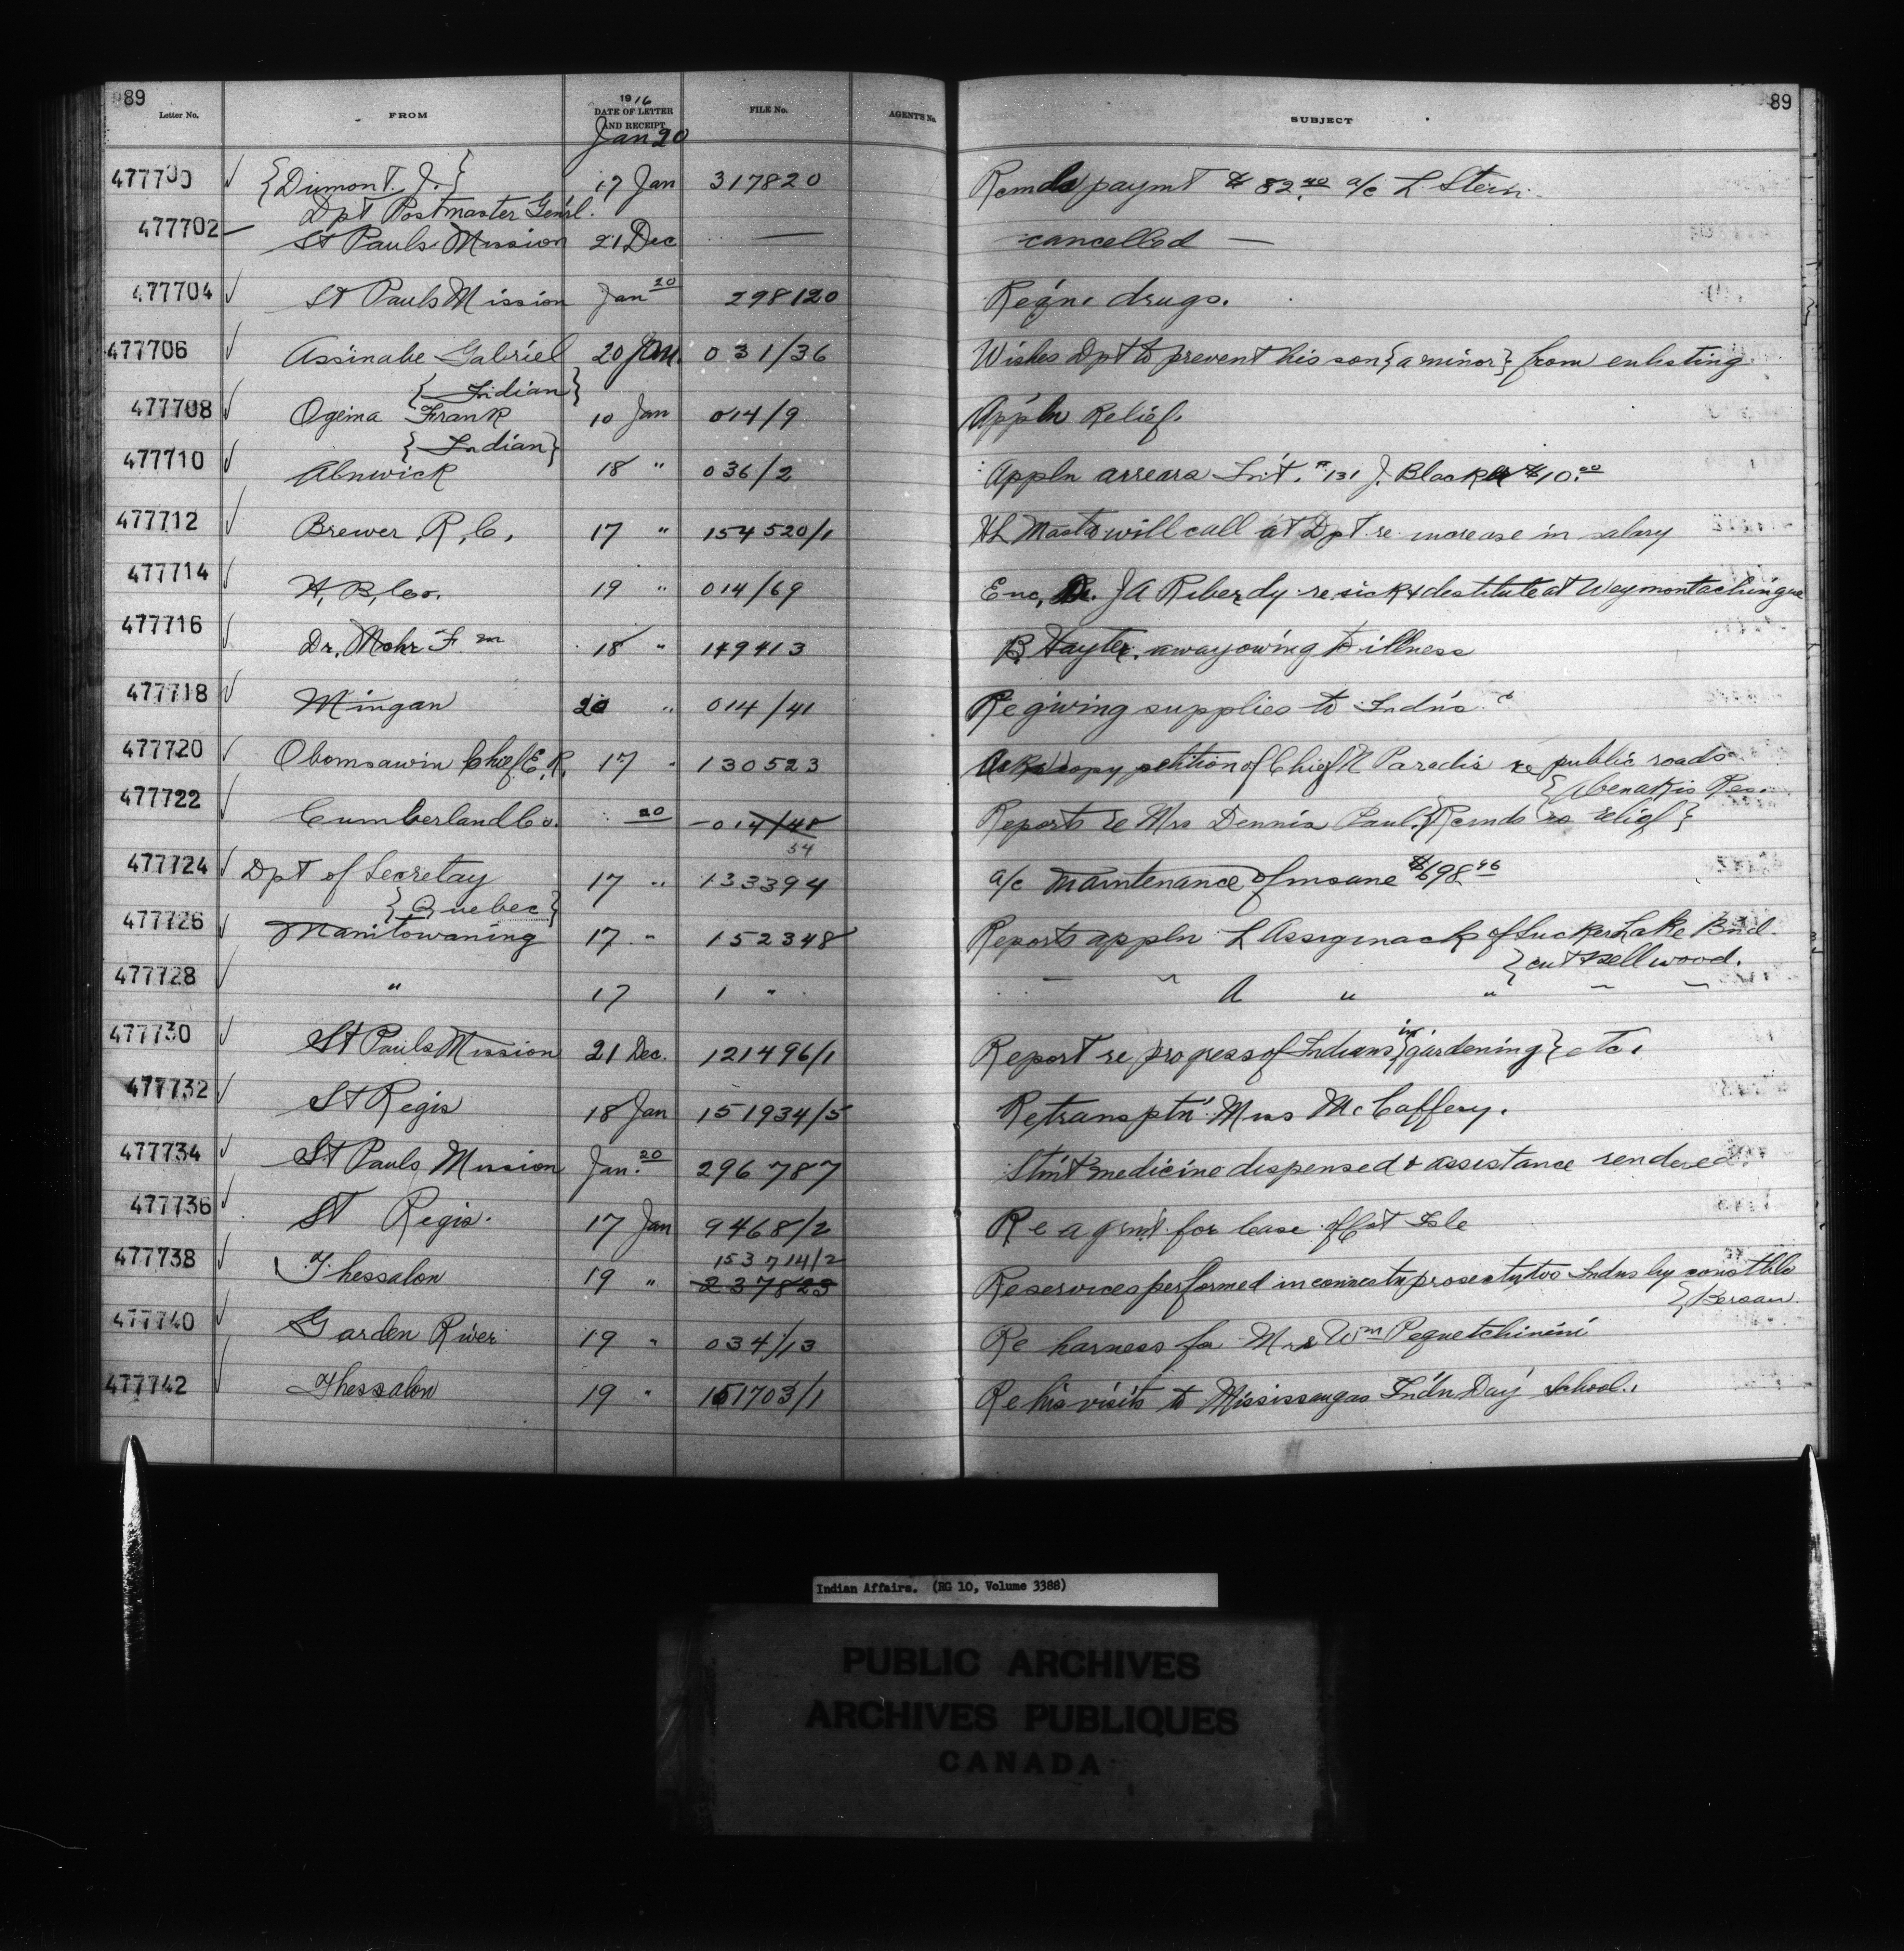 89
89
Letter No. FROM 1916 DATE OF LETTER AND RECEIPT FILE No. AGENT'S No. SUBJECT
Jan 20
477700 {Dumont. J.} 17 Jan 317820 Rcmds paymt $82.40 a/c L. Stern.
Dpt Postmaster Genrl.
477702 St Pauls Mission 21 Dec — cancelled —
477704 St Pauls Mission Jan 20 298120 Reqn. drugs.
477706 Assinabe Gabriel 20 Jan. 031/36 Wishes Dpt to prevent his son {a minor} from enlisting
{Indian}
477708 Ogima Frank 10 Jan 014/9 Appln Relief.
{Indian}
477710 Alnwick 18 " 036/2 Appln arrears Int. #131 J. Blacker $10.00
477712 Brewer R, C, 17 " 154520/1 HL Masta will call at Dpt re increase in salary
477714 H, B, Co. 19 " 014/69 Enc, Dr. JA Riberdy re sick & destitute at Weymontachingue
477716 Dr. Mohr F m 18 " 149413 B. Hayter. away owing to illness
477718 Mingan 20 " 014/41 Re giving supplies to Indns
477720 Obomsawin Chief E. R. 17 " 130523 Asks copy petition of Chief N Paradis re public roads
{Abenakis Res.
477722 Cumberland Co. 20 014/48 Reports re Mrs Dennis Paul. {Rcmds no relief}
54
477724 Dpt of Secretay 17 " 133394 a/c maintenance of insane $698.46
{Quebec}
477726 Manitowaning 17 " 152348 Reports appln L Assiginack of Sucker Lake Bnd
{cut & sell wood.
477728 " 17 1 " — " A " " " "
477730 St Pauls Mission 21 Dec. 121496/1 Report re progress of Indians {in gardening} etc.
477732 St Regis 18 Jan 151934/5 Re transptn Miss McCaffery.
477734 St Pauls Mission Jan. 20 296787 Stmt medicine dispensed & assistance rendered.
477736 St Regis. 17 Jan 9468/2 Re agrmt for lease of Cat Isle
153714/2
477738 Thessalon 19 " 237823 Re services performed in connectn prosectn two Indns by constble
{Bersan
477740 Garden River 19 " 034/13 Re harness for Mrs Wm Peguetchinini
477742 Thessalon 19 " 151703/1 Re his visits to Mississaugas Indn Day School.
Indian Affairs. (RG 10, Volume 3388)
PUBLIC ARCHIVES
ARCHIVES PUBLIQUES
CANADA